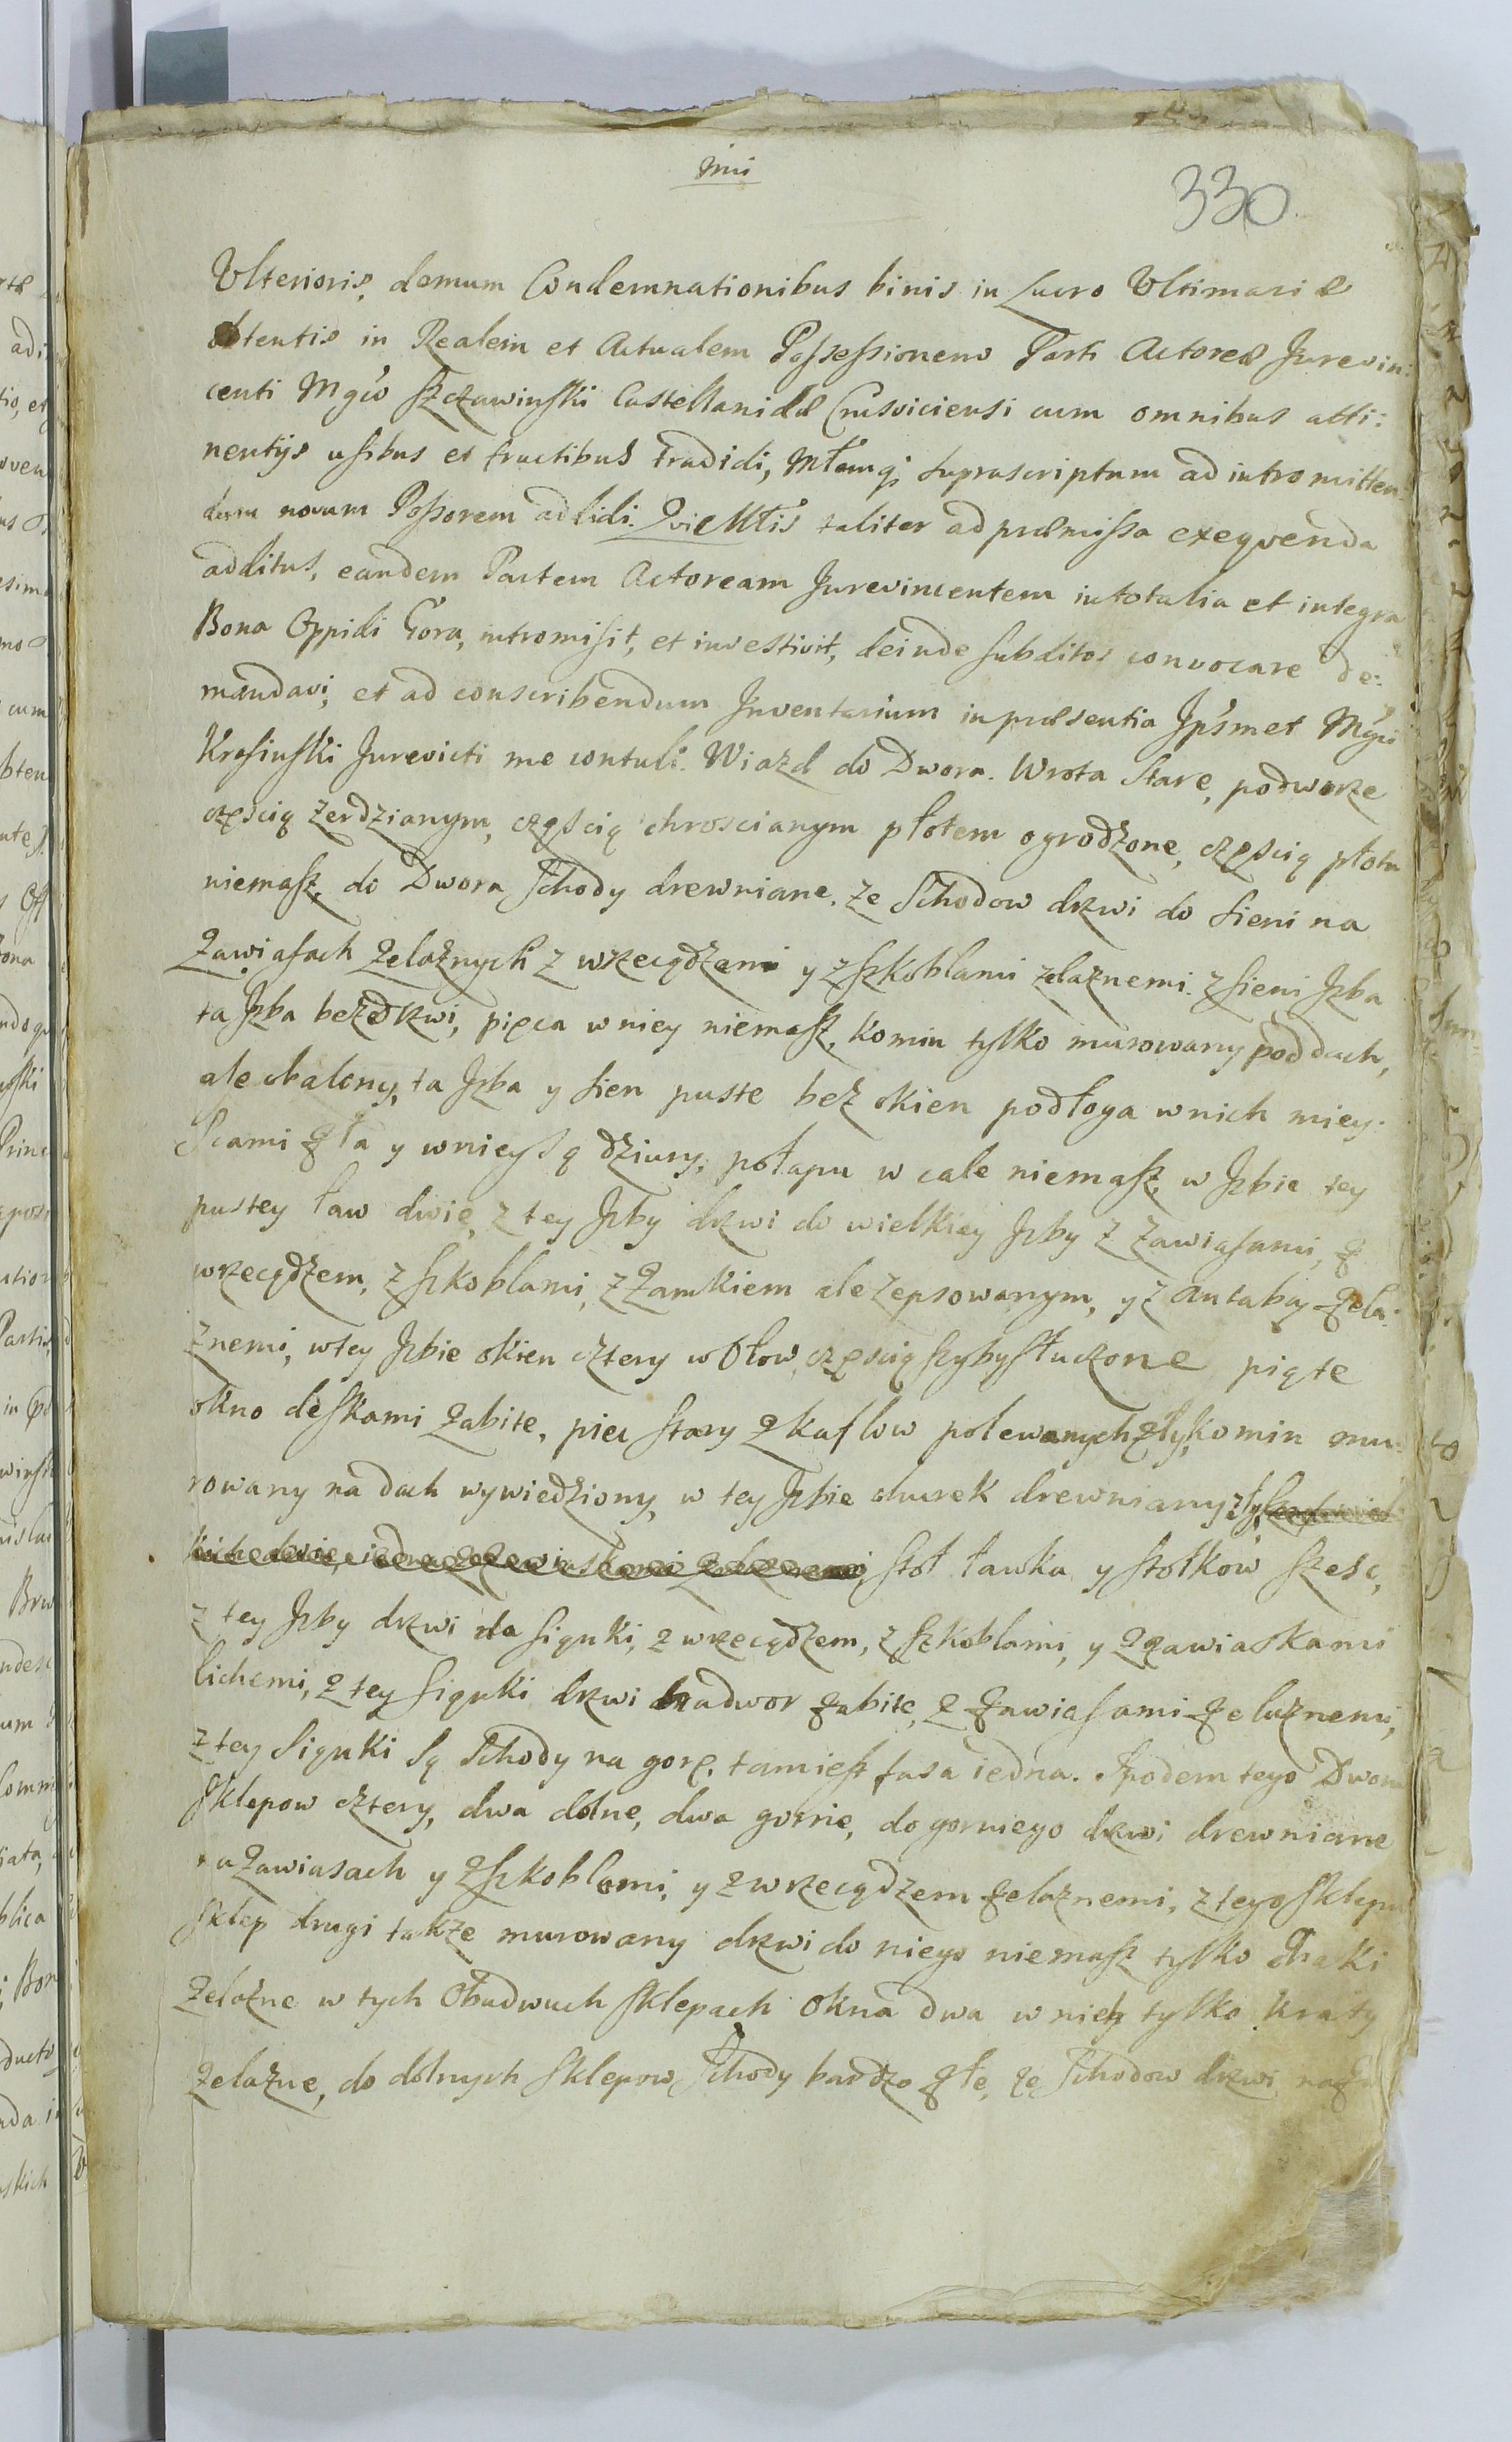 330
Ulterioris, demum Condemnationibus binis in Lucro Ultimariæ
obtentis in Realem et Actualem Possessionem Parti Actoreæ Jurevin:
centi Mgco Szczawinski Castellanidæ Crusviciensi cum omnibus atti:
nentijs usibus et fructibus tradidi, Młemq; suprascriptum ad intromitten:
dum novum Possorem addidi. Qui Młis taliter ad præmissa exeqvenda
additus, eandem Partem Actoream Jurevincentem in totalia et integra
Bona Oppidi Gora, intromisit, et investivit, deinde subditos convocare de:
mandavi, et ad conscribendum Inventarium in præsentia Jpsmet Mgci
Krosinski Jurevicti me contuli. Wiazd do Dwora. Wrota stare, podworze
częscią żerdzianym, częscią chroscianym płotem ogrodzone, częscią płotu
niemasz, do Dwora schody drewniane. ze schodow drzwi do sieni na
zawiasach żelaznych z wrzecądzami y z szkoblami żelaznemi. z sieni Jzba
ta Jzba bez drzwi, pieca w niey niemasz, komin tylko murowany pod dach,
ale obalony, ta Jzba y sien puste bez okien podłoga w nich miey:
scami zła y w niey są dziury, połapu w cale niemasz, w Jzbie tey
pustey ław dwie, z tey Jzby drzwi do wielkiey Jzby z zawiasami, z
wrzecądzem, z szkoblami, z zamkiem ale zepsowanym, y z antabą żela:
znemi, w tey Jzbie okien cztery w ołow, częscią szyby stłuczone piąte
okno deskami zabite, piec stary z kaflow polewanych zły, komin mu:
rowany na dach wywiedziony, w tey Jzbie
drewniany zły
stoł ławka y stołkow szesc,
z tey Jzby drzwi do siąnki, z wrzecądzem, z szkoblami, y z zawiaskami
lichemi, z tey siąnki drzwi na dwor zabite, z zawiasami żelaznemi,
z tey siąnki są schody na gorę, tamiest fasa iedna. Spodem tego Dwora
sklepow cztery, dwa dolne, dwa gorne, do gornego drzwi drewniane
na zawiasach y z szkoblami, y z wrzecądzem żelaznemi, z tego sklepu
sklep drugi także murowany drzwi do niego niemasz tylko haki
żelazne w tych obudwuch sklepach okna dwa w nich tylko kraty
żelazne, do dolnych sklepow schody bardzo złe, ze schodow drzwi